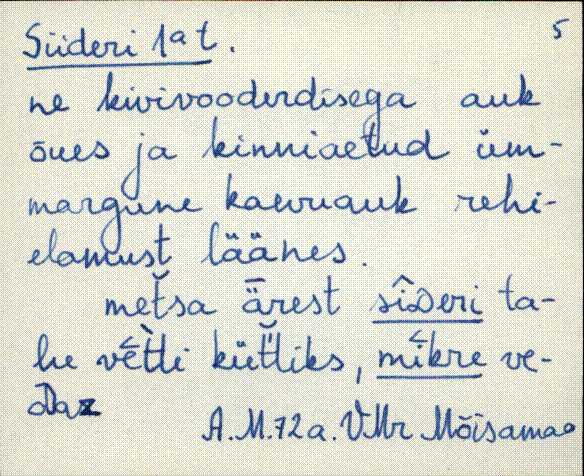 Siideri 1at. 5
ne kivivooderdisega auk
õues ja kinniaetud üm-
margune kaevuauk rehi-
elamust läänes.
metsa ärest sîɷeri ta-
he vètti kütliks, mikre ve-
daz
A.M.72a. VMr Mõisamaa